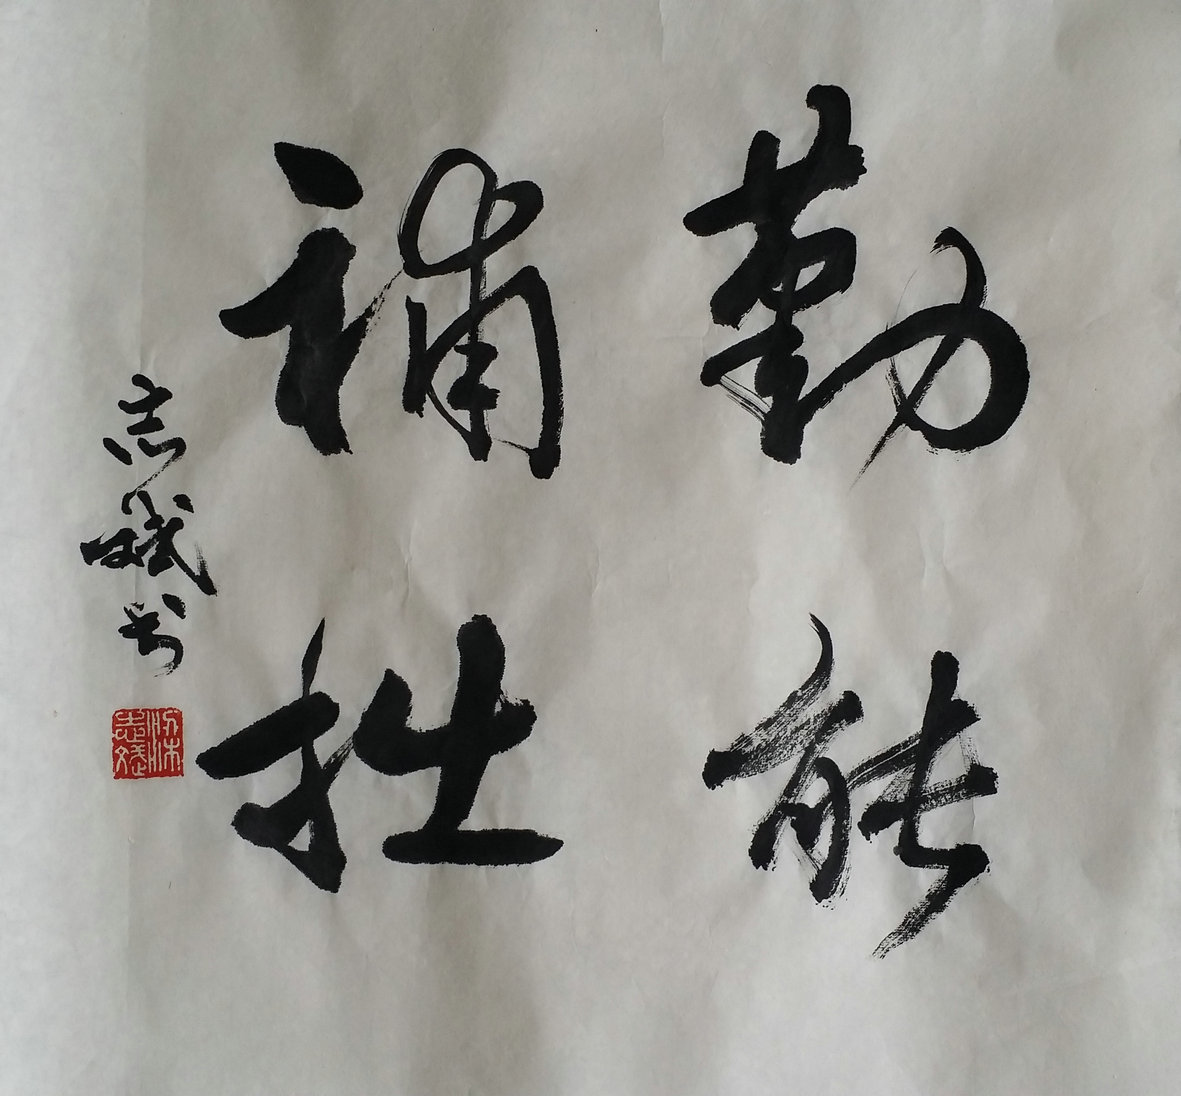 勤能
補拙
志斌书